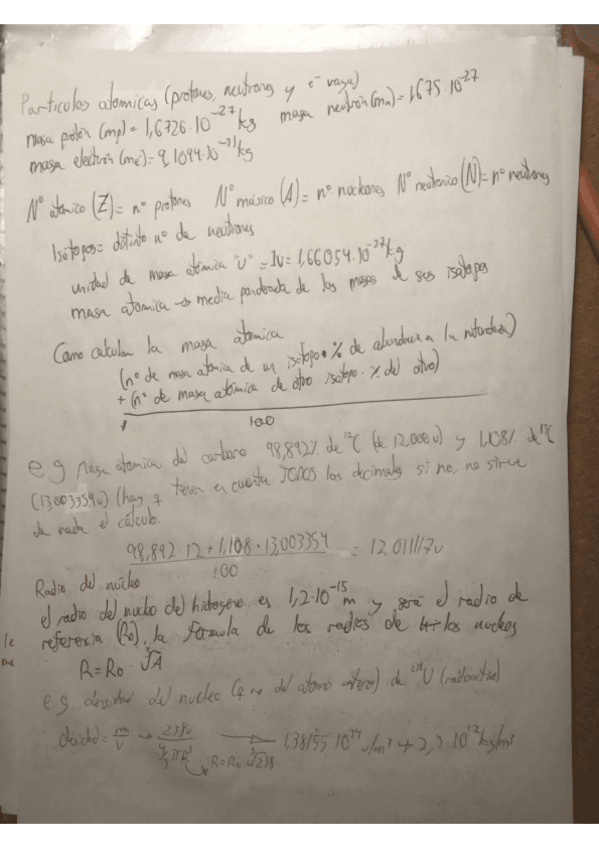 Partículas atómicas (protones, neutrones y e⁻ vaya)
masa protón (mp) = 1,6726·10⁻²⁷ kg masa neutrón (mn) = 1,675·10⁻²⁷
masa electrón (me) = 9,1094·10⁻³¹ kg
Nº atómico (Z) = nº protones Nº másico (A) = nº nucleones Nº neutronico (N) = nº neutrones
Isótopos = distinto nº de neutrones
unidad de masa atómica "u" = 1u = 1,66054·10⁻²⁷ kg
masa atomica → media ponderada de las masas de sus isotopos
Como calculan la masa atomica
(nº de masa atomica de un isotopo · % de abundancia en la naturaleza)
+ (nº de masa atómica de otro isotopo · % del otro)
100
e g Masa atomica del carbono 98,892% de ¹²C (de 12,000u) y 1,108% de ¹³C
(13,003354u) (hay q tener en cuenta TODOS los decimales si no, no sirve
de nada el cálculo.
98,892·12 + 1,108 · 13,003354 = 12,011117u
100
Radio del núcleo
el radio del nucleo del hidogeno es 1,2·10⁻¹⁵ m y será el radio de
referencia (R₀), la formula de los radios de los nucleos
R = R₀ · ∛A
e g densidad del nucleo (q no del atomo entero) de ²³⁸U (radioactivo)
densidad = m/v → 238u / (4/3 πR³) → 1,38155 10⁴⁴ u/m³ → 2,3 10¹⁷ kg/m³
R = R₀ ∛238